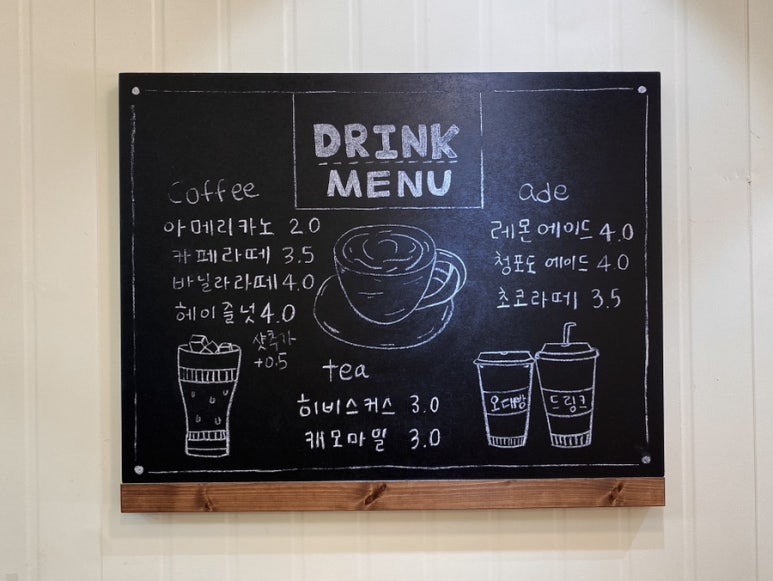 DRINK
MENU
Coffee
아메리카노 2.0
카페라떼 3.5
바닐라라떼 4.0
헤이즐넛 4.0
샷추가
+0.5
ade
레몬에이드 4.0
청포도 에이드 4.0
초코라떼 3.5
tea
히비스커스 3.0
캐모마일 3.0
오대방
드링크